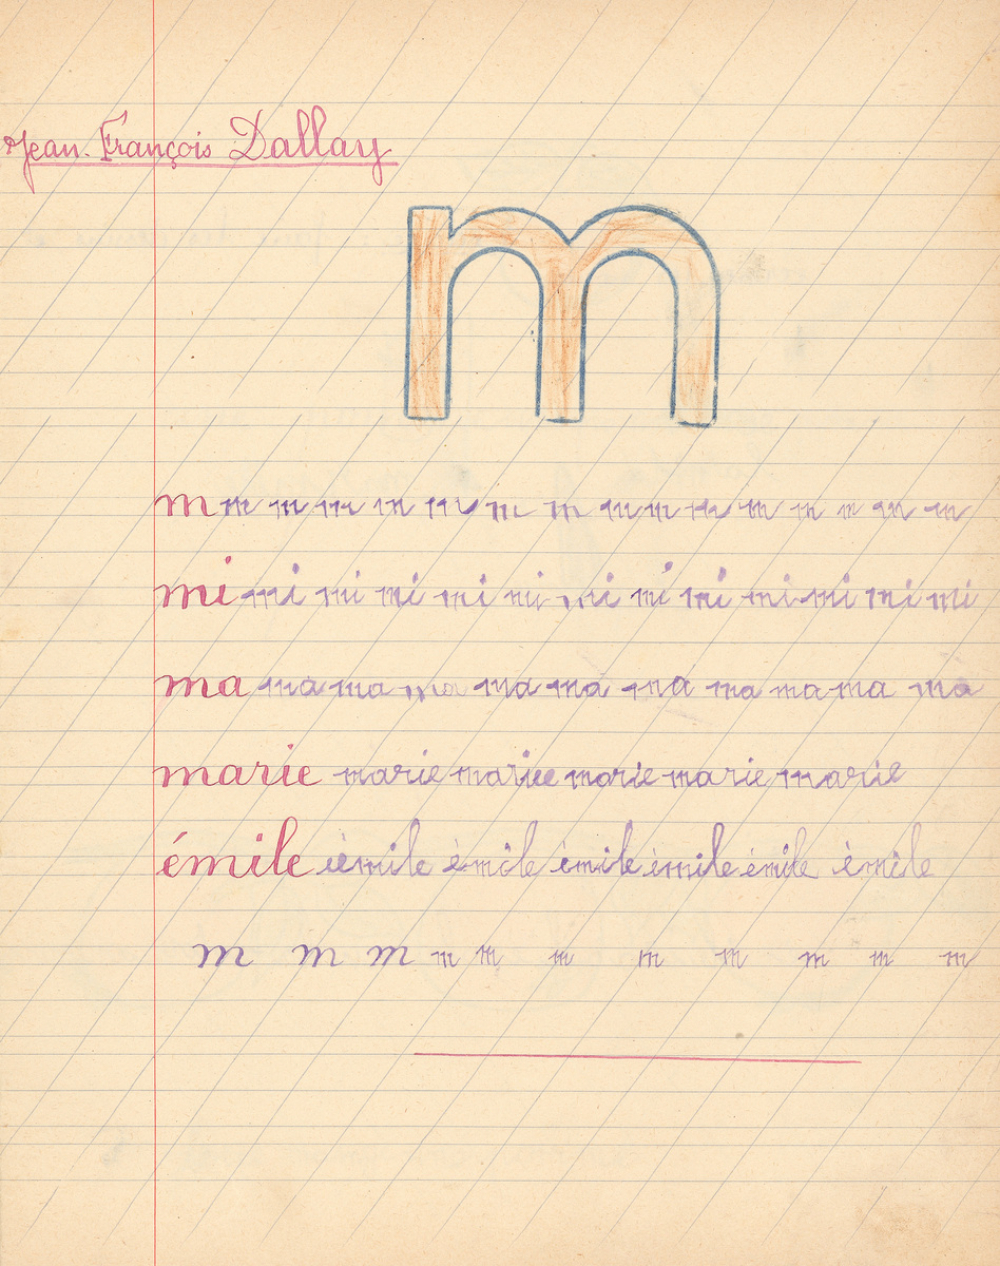 Jean-François Dallay
m
m m m m m m m m m m m m m m m m
mi mi mi mi mi mi mi mi mi mi mi mi mi
ma ma ma ma ma ma ma ma ma ma ma
marie marie mariee marie marie marie
émile iémile émile émile émile émile émile
m m m m m m m m m m m